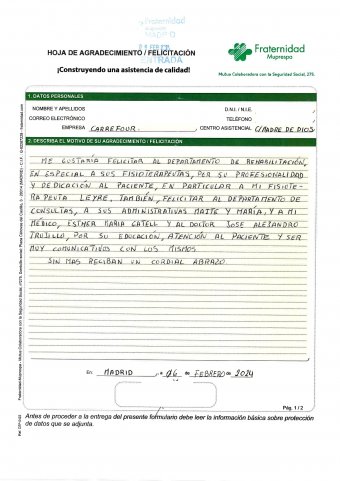 Fraternidad
Muprespa
ENTRADA
HOJA DE AGRADECIMIENTO / FELICITACIÓN
¡Construyendo una asistencia de calidad!
Fraternidad
Muprespa
Mutua Colaboradora con la Seguridad Social, 275.
1. DATOS PERSONALES
NOMBRE Y APELLIDOS
D.N.I. / N.I.E.
CORREO ELECTRÓNICO
TELÉFONO
EMPRESA CARREFOUR.
CENTRO ASISTENCIAL C/MADRE DE DIOS
2. DESCRIBA EL MOTIVO DE SU AGRADECIMIENTO / FELICITACIÓN
ME GUSTARIA FELICITAR AL DEPARTAMENTO DE REHABILITACIÓN,
EN ESPECIAL A SUS FISIOTERAPEUTAS, POR SU PROFESIONALIDAD
Y DEDICACIÓN AL PACIENTE, EN PARTICULAR A MI FISIOTE-
RAPEUTA LEYRE, TAMBIÉN, FELICITAR AL DEPARTAMENTO DE
CONSULTAS, A SUS ADMINISTRATIVAS MAITE Y MARÍA, Y A MI
MÉDICO, ESTHER MARIA GATELL Y AL DOCTOR JOSE ALEJANDRO
TRUJILLO, POR SU EDUCACIÓN, ATENCIÓN AL PACIENTE Y SER
MUY COMUNICATIVOS CON LOS MISMOS.
SIN MAS RECIBAN UN CORDIAL ABRAZO.
En: MADRID a 06 de FEBRERO de 2024
Pág. 1 / 2
Antes de proceder a la entrega del presente formulario debe leer la información básica sobre protección
de datos que se adjunta.